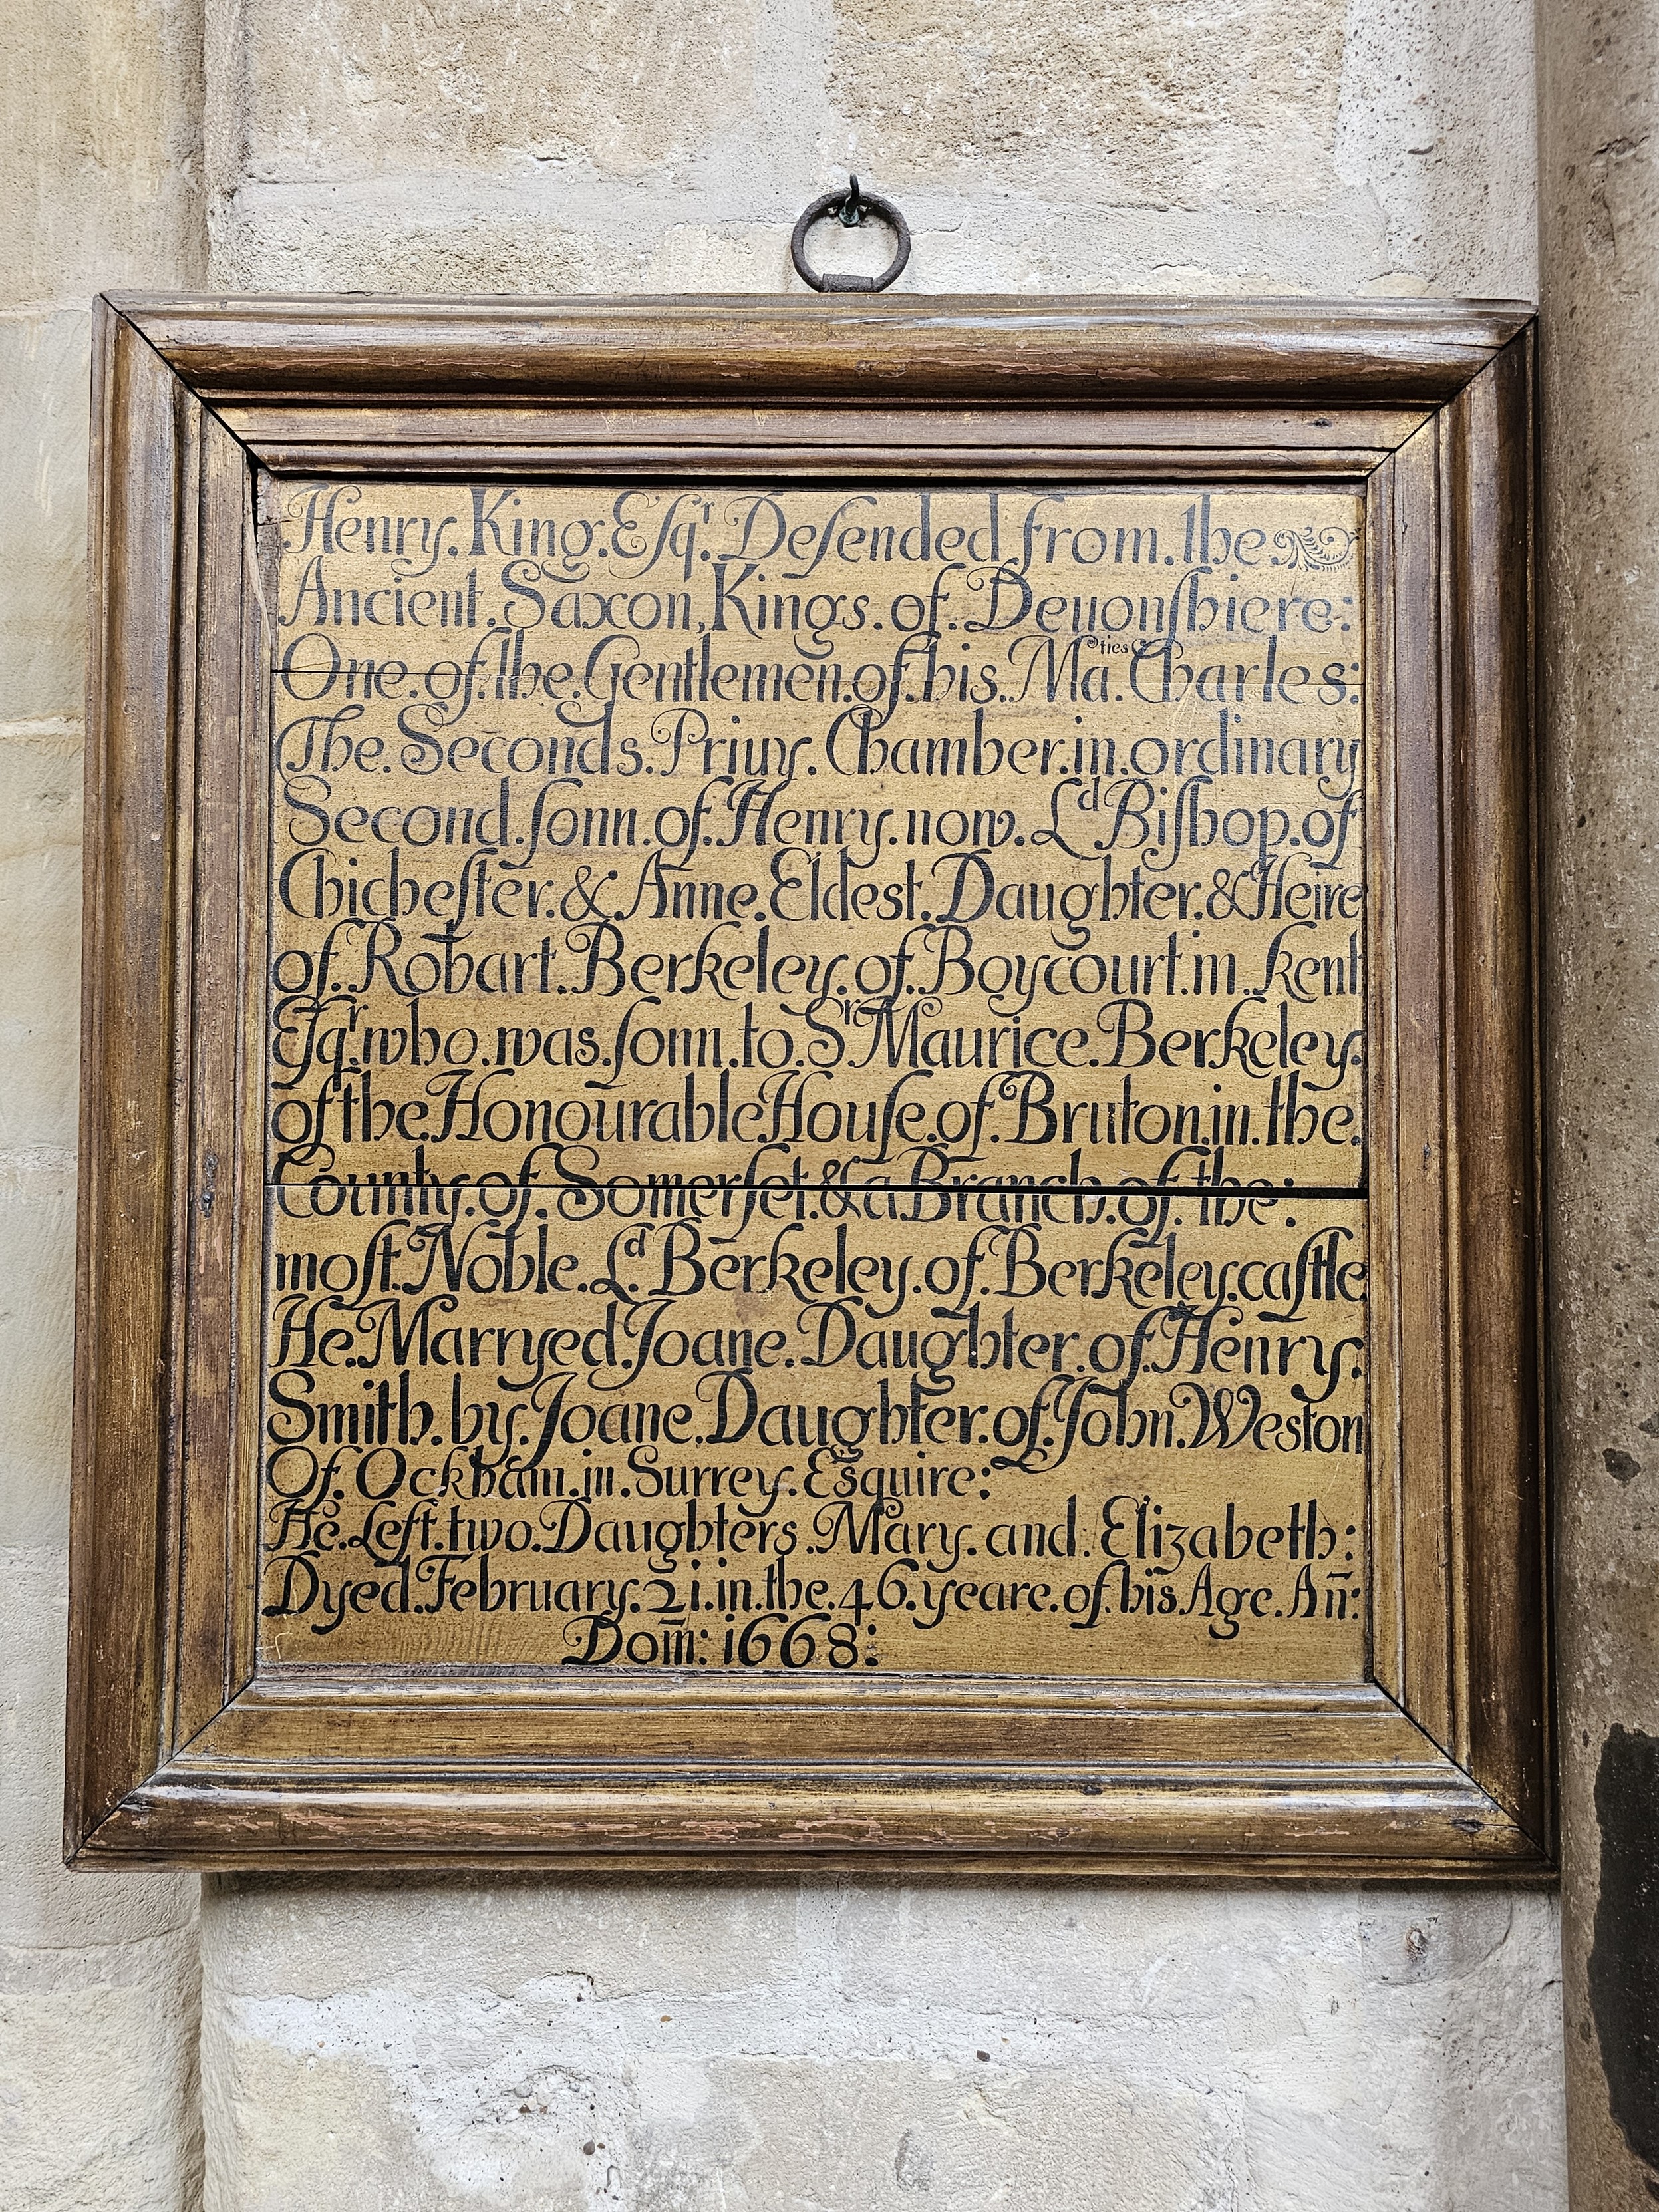 Henry. King. Eſqʳ. Deſended from. the
Ancient. Saxon, Kings. of. Deuonſhiere:
One. of. the. Gentlemen. of. his. Maᵗⁱᵉˢ. Charles:
The. Seconds. Priuy. Chamber. in. ordinary
Second. ſonn. of. Henry. now. Lᵈ Biſhop. of
Chicheſter. & Anne. Eldest. Daughter. & Heire
of. Robart. Berkeley. of. Boycourt. in. kent
Eſqʳ. who. was. ſonn. to. Sʳ Maurice. Berkeley.
of the. Honourable Houſe. of. Bruton. in. the.
County. of. Somerſet. & a Branch. of. the:
moſt. Noble. Lᵈ. Berkeley. of. Berkeley. caſtle
He. Marryed. Joane. Daughter. of. Henry.
Smith. by. Joane. Daughter. of. John. Weston
Of. Ockham. in. Surrey. Esquire:
He. Left. two. Daughters. Mary. and. Elizabeth:
Dyed. February. 21. in. the. 46. yeare. of. his. Age. An̄:
Dom̄: 1668: